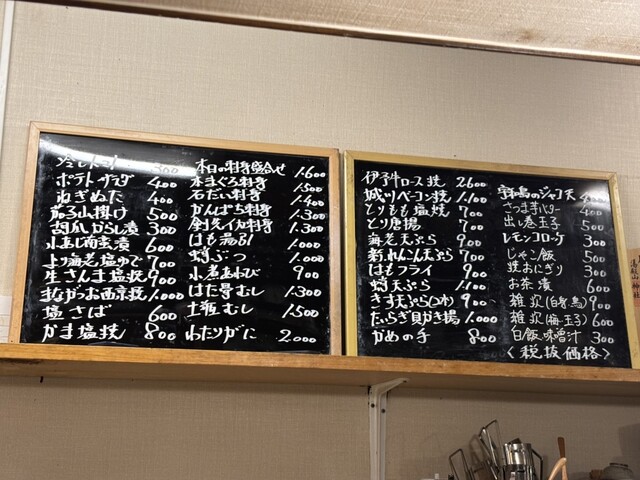 冷しトマト 300
ポテトサラダ 400
ねぎぬた 400
茄子ふ掛け 500
胡瓜からし漬 300
小あじ南蛮漬 600
より海老塩ゆで 700
生さんま塩焼 900
まながつお西京焼 1.000
塩さば 600
かま塩焼 800
本日の刺身盛合せ 1.600
本まぐろ刺身 1.500
石だい刺身 1.400
かんぱち刺身 1.300
剣先イカ刺身 1.300
はも湯引 1.000
蛸ぶつ 1.000
小煮あわび 900
はた骨むし 1.300
土瓶むし 1.500
わたりがに 2.000
伊予牛ロース焼 2.600
城川ベーコン焼 1.100
とりもも塩焼 700
とり唐揚 700
海老天ぷら 900
新れんこん天ぷら 700
はもフライ 900
蛸天ぷら 1.100
きす天ぷら 900
たいらぎ貝かき揚 1.000
かめの手 800
のジャコ天
さつま芋バター 400
出し巻玉子 500
レモンコロッケ 300
じゃこ飯 500
焼おにぎり 300
お茶漬 600
雑炊(白身・鳥) 900
雑炊(梅・玉子) 600
白飯味噌汁 300
<税抜価格>